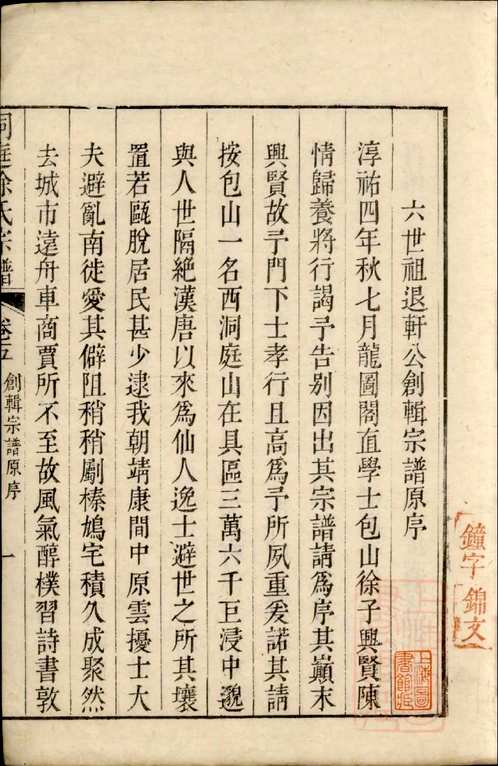 六世祖退軒公創輯宗譜原序
淳祐四年秋七月龍圖閣直學士包山徐子興賢陳
情歸養將行謁予告别因出其宗譜請爲序其巔末
興賢故予門下士孝行且高爲予所夙重爰諾其請
按包山一名西洞庭山在具區三萬六千巨浸中邈
與人世隔絶漢唐以來爲仙人逸士避世之所其壤
置若甌脫居民甚少逮我朝靖康間中原雲擾士大
夫避亂南徙愛其僻阻稍稍劚榛鳩宅積久成聚然
去城市遠舟車商賈所不至故風氣醇樸習詩書敦
洞庭徐氏宗譜
卷五
創輯宗譜原序
一
鐘字錦文
上海圖書館藏